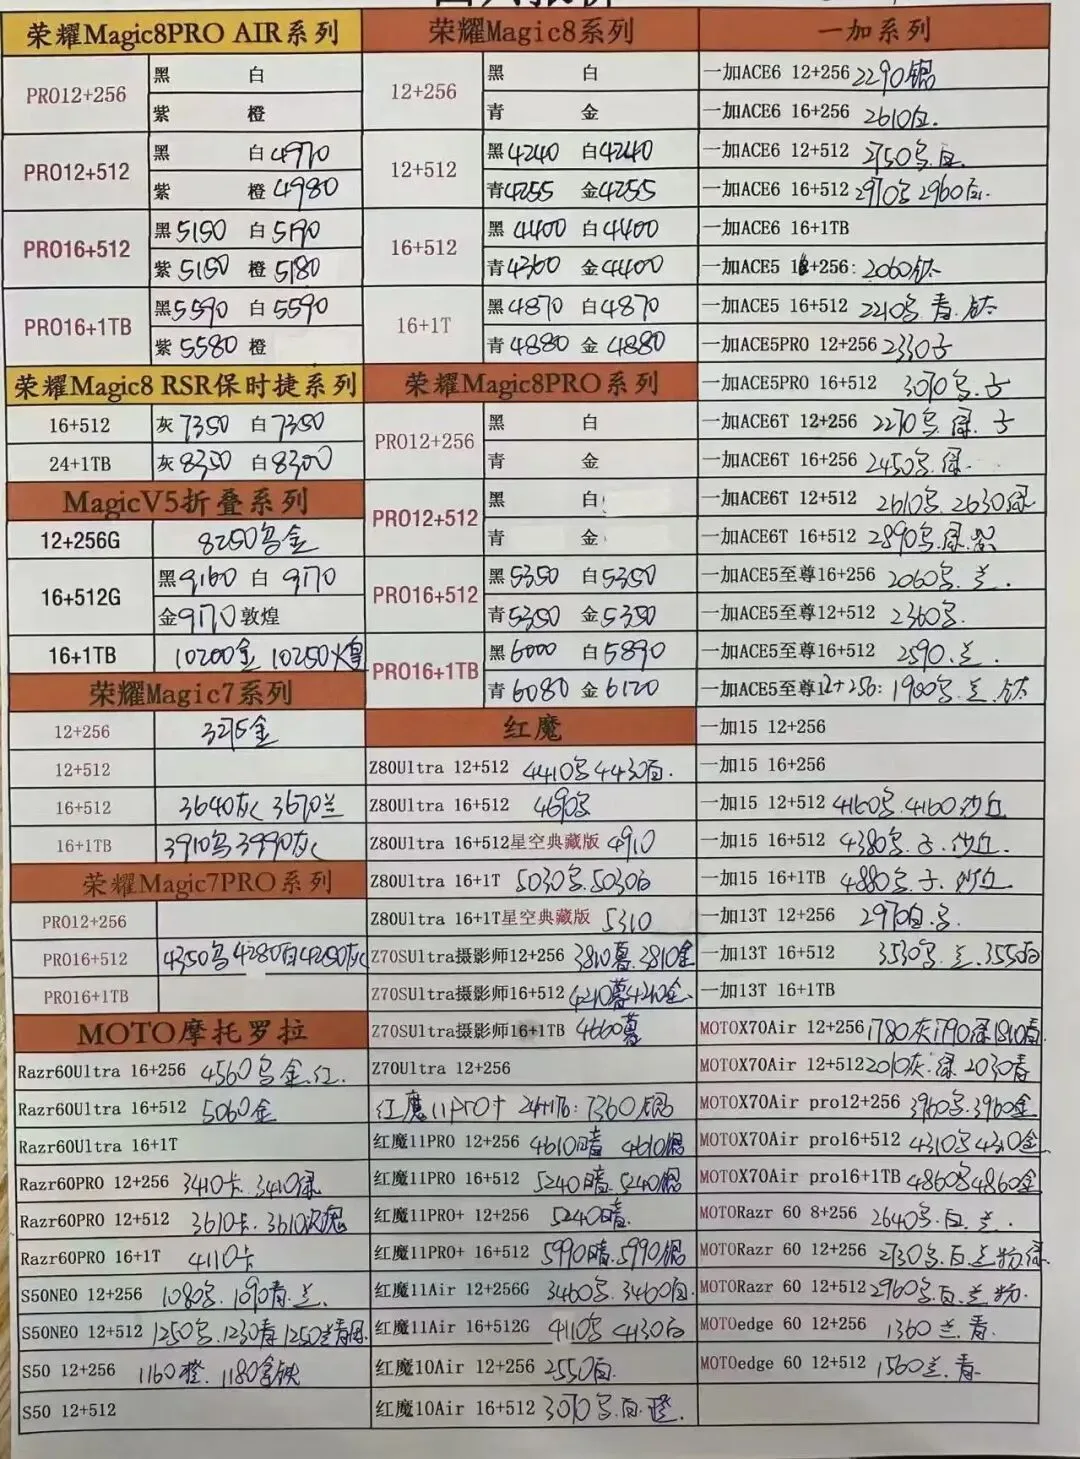 荣耀Magic8PRO AIR系列
PRO12+256 黑 白
紫 橙
PRO12+512 黑 白4970
紫 橙4980
PRO16+512 黑5150 白5190
紫5150 橙5180
PRO16+1TB 黑5590 白5590
紫5580 橙
荣耀Magic8 RSR保时捷系列
16+512 灰7350 白7350
24+1TB 灰8350 白8300
MagicV5折叠系列
12+256G 8250乌金
16+512G 黑9160 白9170
金9170敦煌
16+1TB 10200金 10250
荣耀Magic7系列
12+256 金
12+512
16+512 3640灰 3670兰
16+1TB 3910乌3990灰
荣耀Magic7PRO系列
PRO12+256
PRO16+512 4350乌4280白4250灰
PRO16+1TB
MOTO摩托罗拉
Razr60Ultra 16+256 4560乌金.红.
Razr60Ultra 16+512 5060金
Razr60Ultra 16+1T
Razr60PRO 12+256 3410卡.3410绿
Razr60PRO 12+512 3610卡.3610
Razr60PRO 16+1T 4110卡
S50NEO 12+256 1080乌.1090青.兰.
S50NEO 12+512 1250乌.1230青1250兰
S50 12+256 1160橙.1180
S50 12+512
荣耀Magic8系列
12+256 黑 白
青 金
12+512 黑4240 白4240
青4255 金4255
16+512 黑4400 白4400
青4360 金4400
16+1T 黑4870 白4870
青4880 金4880
荣耀Magic8PRO系列
PRO12+256 黑 白
青 金
PRO12+512 黑 白
青 金
PRO16+512 黑5350 白5350
青5350 金5350
PRO16+1TB 黑6000 白5890
青6080 金6120
红魔
Z80Ultra 12+512 4410乌4430白.
Z80Ultra 16+512 4690乌
Z80Ultra 16+512星空典藏版 4910
Z80Ultra 16+1T 5030乌.5030白
Z80Ultra 16+1T星空典藏版 5310
Z70SUltra摄影师12+256 3810暮.3810金
Z70SUltra摄影师16+512 4210暮4210金.
Z70SUltra摄影师16+1TB 4660暮
Z70Ultra 12+256
红魔11PRO+ 24+1TB:7360银
红魔11PRO 12+256 4610暗 4610银
红魔11PRO 16+512 5240暗.5240银
红魔11PRO+ 12+256 5240暗.
红魔11PRO+ 16+512 5990暗.5990银
红魔11Air 12+256G 3460乌.3460白.
红魔11Air 16+512G 4110乌 4130白
红魔10Air 12+256 2550白.
红魔10Air 16+512 3070乌.白.橙.
一加系列
一加ACE6 12+256 2290银
一加ACE6 16+256 2610白.
一加ACE6 12+512 2750乌.白.
一加ACE6 16+512 2970乌 2960白.
一加ACE6 16+1TB
一加ACE5 +256: 2060钛
一加ACE5 16+512 2210乌 青.钛
一加ACE5PRO 12+256 2330子
一加ACE5PRO 16+512 3070乌.子
一加ACE6T 12+256 2270乌 绿.子
一加ACE6T 16+256 2450乌.绿.
一加ACE6T 12+512 2610乌.2630绿.
一加ACE6T 16+512 2890乌.绿.
一加ACE5至尊16+256 2060乌.兰.
一加ACE5至尊12+512 2360乌.
一加ACE5至尊16+512 2590.兰.
一加ACE5至尊12+256: 1900乌.兰.钛
一加15 12+256
一加15 16+256
一加15 12+512 4160乌.4160沙丘
一加15 16+512 4380乌.子.沙丘.
一加15 16+1TB 4880乌.子.沙丘
一加13T 12+256 2970白.乌.
一加13T 16+512 3530乌.兰.3550白
一加13T 16+1TB
MOTOX70Air 12+256 1780灰1790绿1810青
MOTOX70Air 12+512 2010灰.绿.2030青
MOTOX70Air pro12+256 3960乌.3960金
MOTOX70Air pro16+512 4310乌4310金
MOTOX70Air pro16+1TB 4860乌4860金
MOTORazr 60 8+256 2640乌.白.兰.
MOTORazr 60 12+256 2730乌.白.兰粉.绿
MOTORazr 60 12+512 2960乌.白.兰粉.
MOTOedge 60 12+256 1360兰.青.
MOTOedge 60 12+512 1560兰.青.